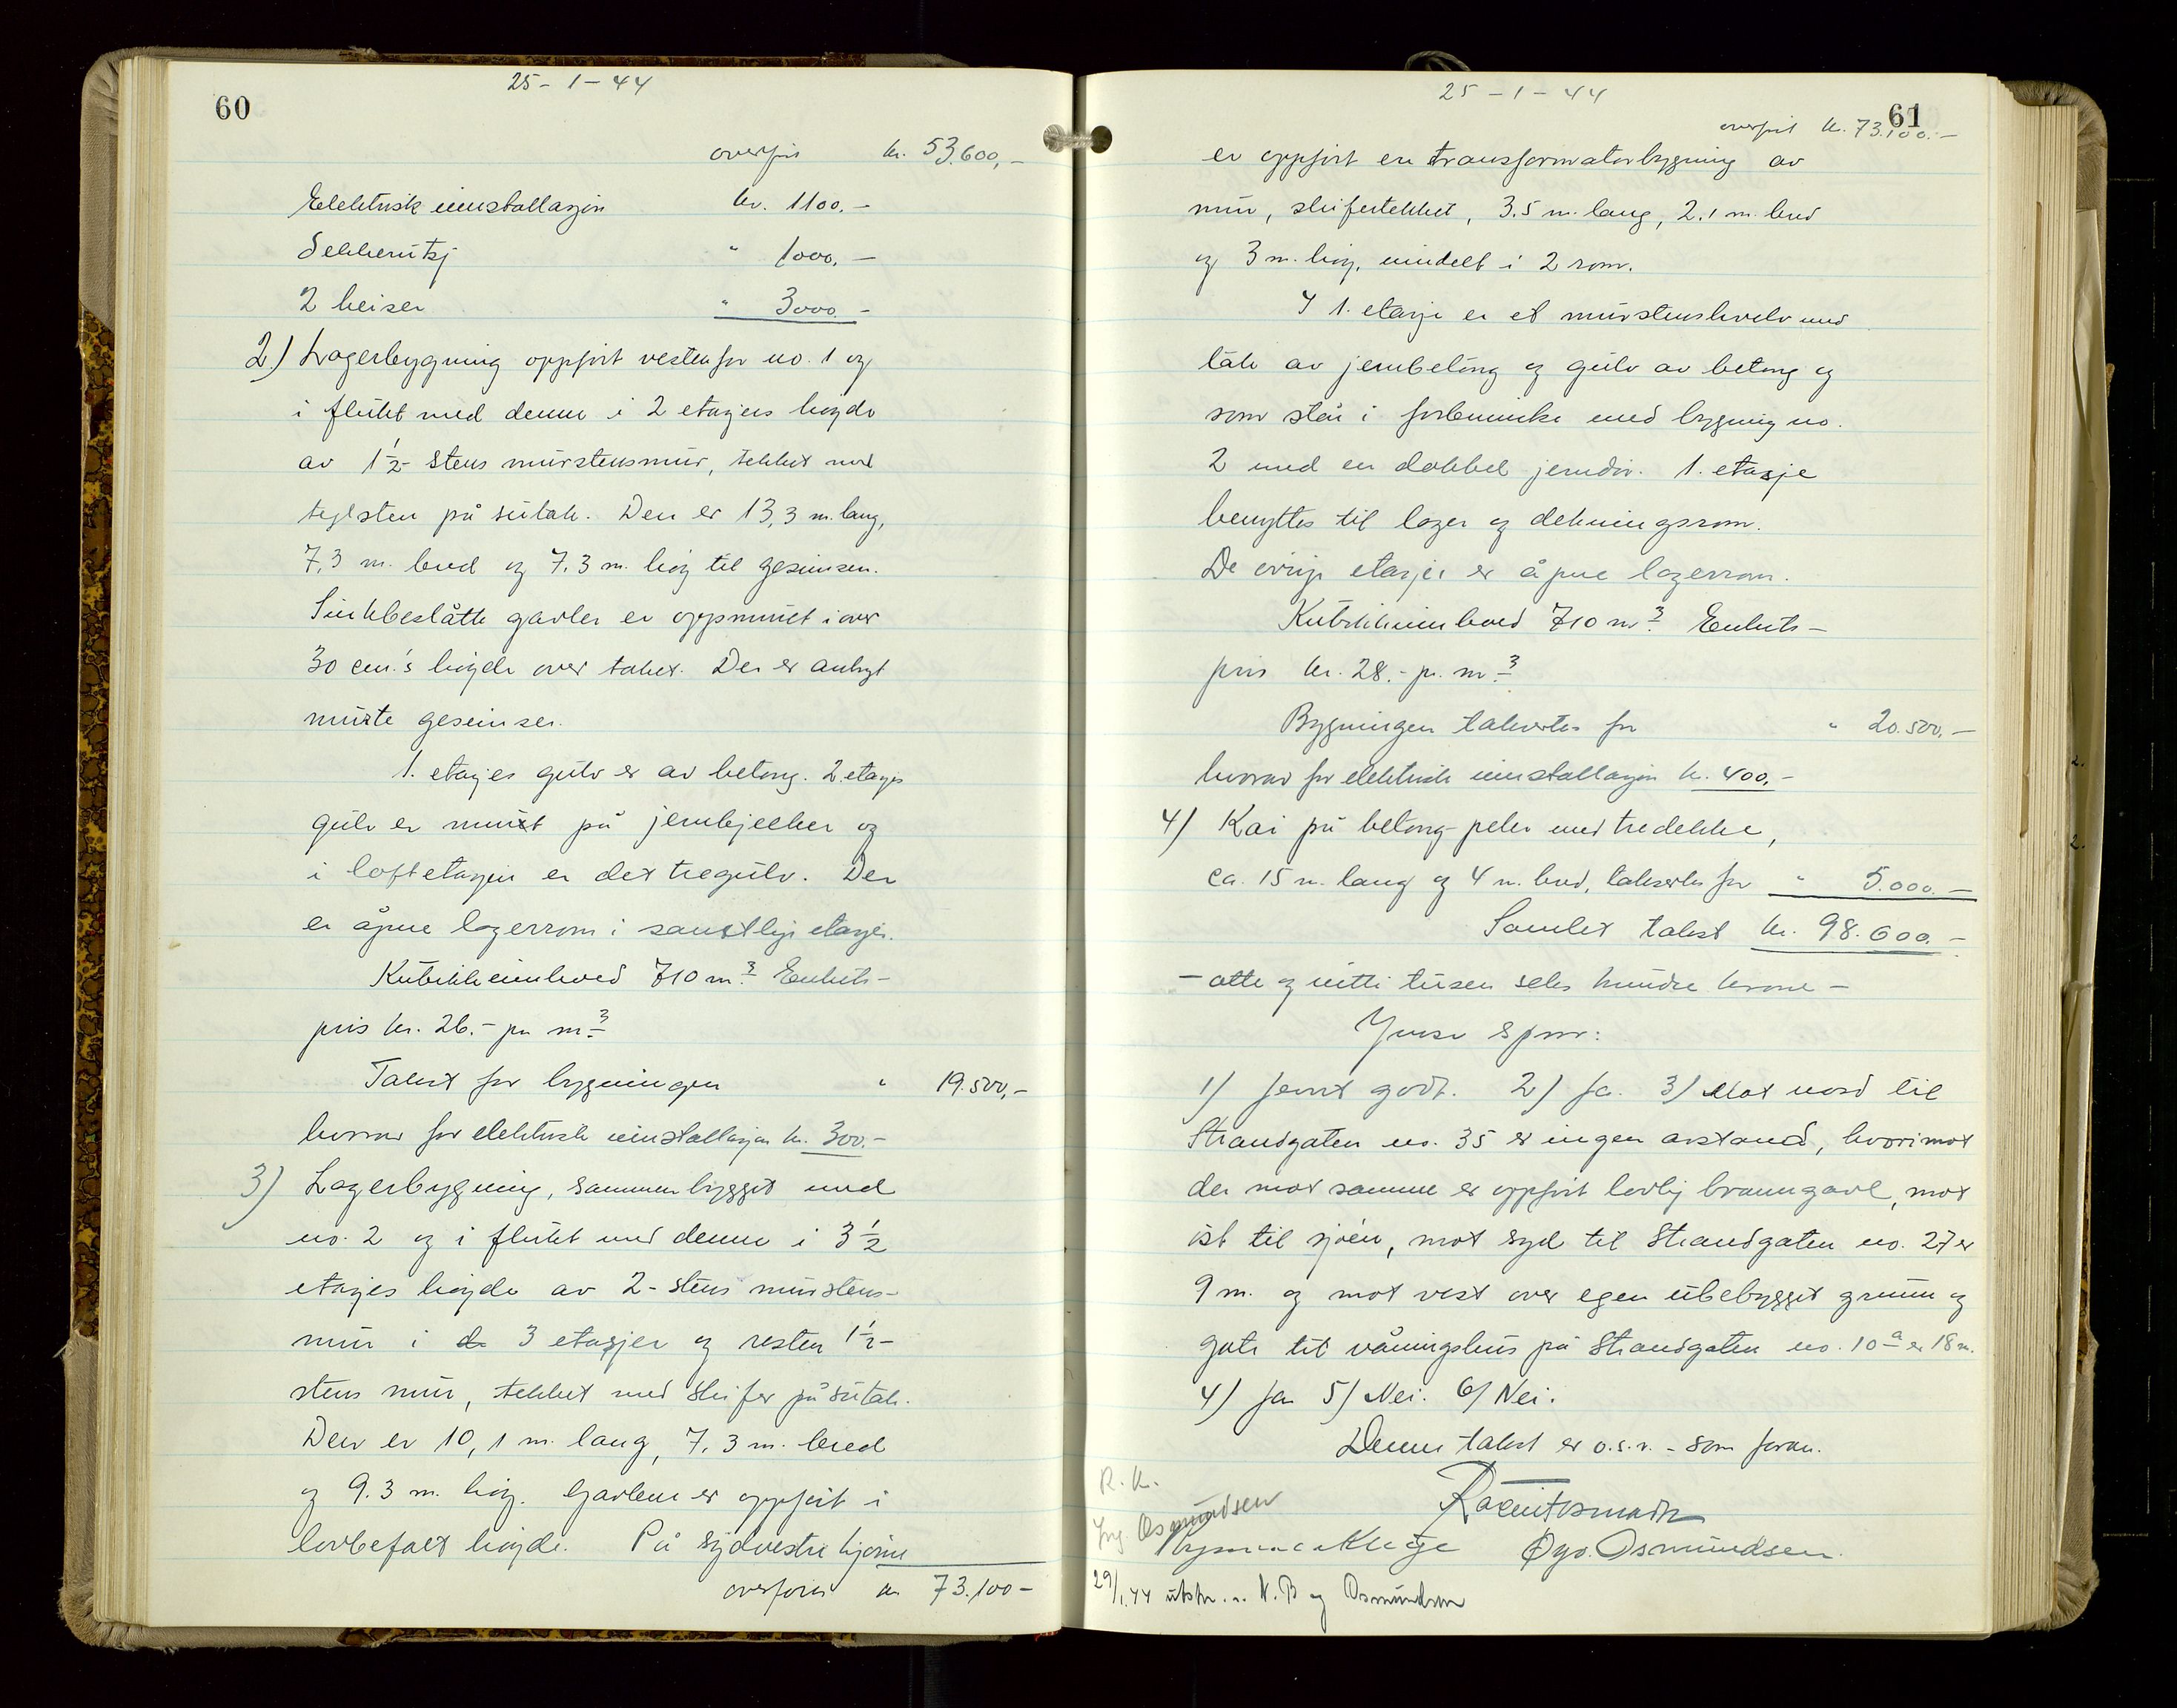 60
25-1-44
overført kr. 53.600,-
Elektrisk innstallasjon kr. 1100.-
Sekkerutsj " 1000.-
2 heiser " 3000.-
2) Lagerbygning oppført vestenfor no. 1 og
i flukt med denne i 2 etasjers høyde
av 1½ stens murstensmur, tekket med
teglsten på sutak. Den er 13,3 m. lang,
7,3 m. bred og 7.3 m. høy til gesimsen.
Sinkbeslåtte gavler er oppmuret i over
30 cm.'s høyde over taket. Der er anbragt
murte gesimser.
1. etasjes gulv er av betong. 2. etasjes
gulv er murt på jernbjelker og
i loftetasjen er det tregulv. Der
er åpne lagerrom i samtlige etasjer.
Kubikkinnhold 710 m³. Enhets-
pris kr. 26.- pr. m³
Takst for bygningen " 19.500,-
hvorav for elektrisk innstallasjon kr. 300.-
3) Lagerbygning, sammenbygget med
no. 2 og i flukt med denne i 3½
etasjes høyde av 2-stens murstens-
mur i de 3 etasjer og resten 1½-
stens mur, tekket med skifer på sutak.
Den er 10,1 m. lang, 7.3 m. bred
og 9.3 m. høy. Gavlene er oppført i
lovbefalt høyde. På sydvestre hjørne
overføres kr 73.100-
61
25-1-44
overført kr. 73.100.-
er oppført en transformatorbygning av
mur, skifertekket, 3.5 m. lang, 2.1 m. bred
og 3 m. høy, inndelt i 2 rom.
I 1. etasje er et murstenshvelv med
tak av jernbetong og gulv av betong og
som står i forbindelse med bygning no.
2 med en dobbel jerndør. 1. etasje
benyttes til lager og dekningsrom.
De øvrige etasjer er åpne lagerrom.
Kubikkinnhold 710 m³. Enhets-
pris kr. 28.- pr. m³
Bygningen takseres for " 20.500.-
hvorav for elektrisk innstallasjon kr. 400.-
4) Kai på betong-peler med tredekke,
ca. 15 m. lang og 4 m. bred, takseres for " 5.000.-
Samlet takst kr. 98.600.-
- otte og nitti tusen seks hundre krone -
Innse spm:
1) Jevnt godt. 2) Ja. 3) Mot nord til
Strandgaten no. 35 er ingen avstand, hvorimot
der mot samme er oppført lovlig branngavl, mot
øst til sjøen, mot syd til Strandgaten no. 27 er
9 m. og mot vest over egen ubebygget grunn og
gate til våningshus på Strandgaten no. 10ª er 18 m.
4) Ja 5) Nei. 6) Nei.
Denne takst er o.s.v. - som foran.
R. K.
Ing. Osmundsen
Øyv. Osmundsen.
29/1.44 utskr. N.B og Osmundsen